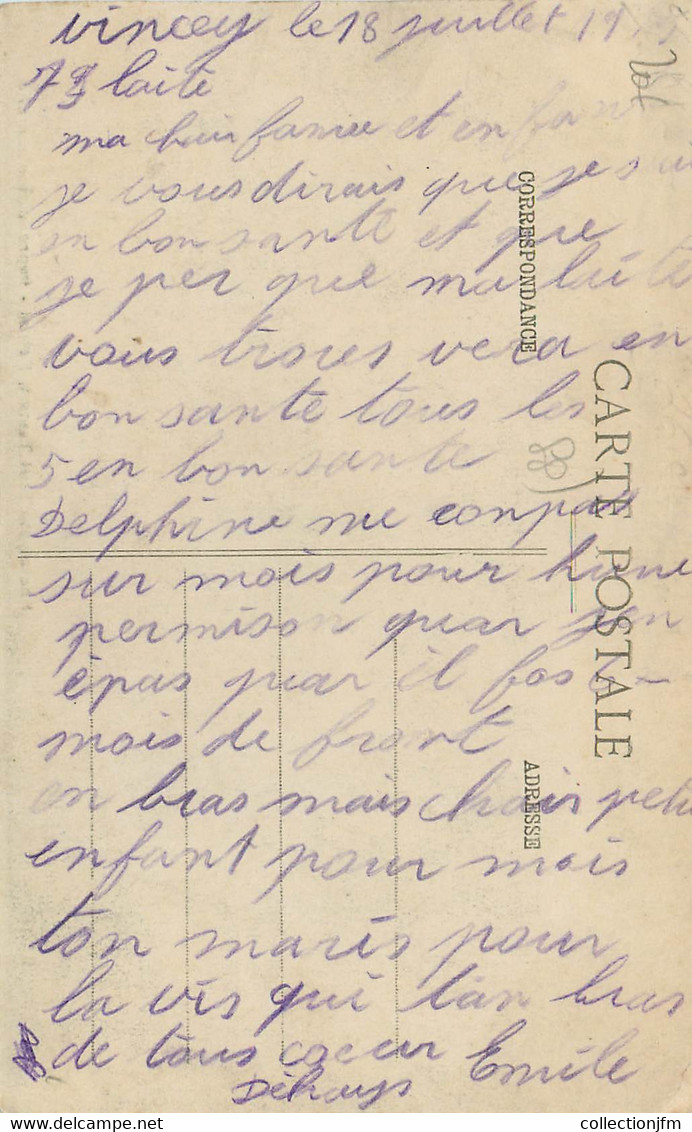 Vincey le 18 juillet 19
laite
ma fame et enfan
je vous dirais que je sui
en bon sante et que
je per que ma laite
vous troues vera en
bon sante tous les
5 en bon sante
Delphine me compas
sur mois pour hune
permison quar jen
épas quar il fos 5
mois de front
en bras mais chair petit
enfant pour mois
ton maris pour
la vis qui tan bras
de tous coeur Emile
CORRESPONDANCE
CARTE POSTALE
ADRESSE
collectionjfm